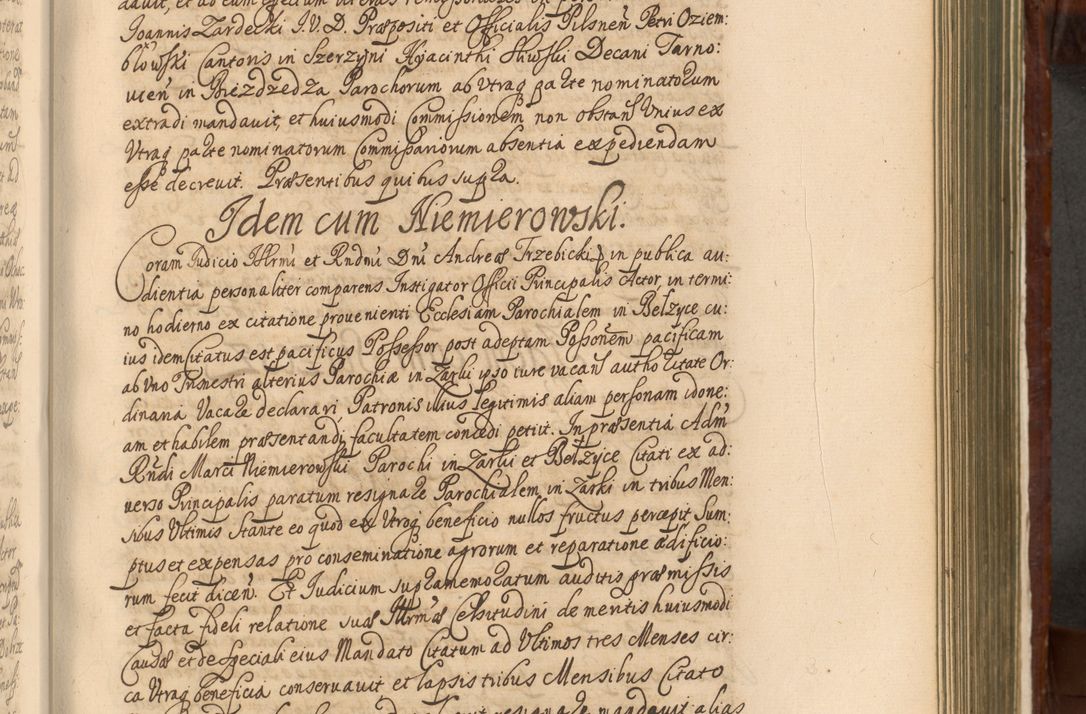 Joannis Zardecki J. V. D. Præpositi et Officialis Pilsneñ Petri Oziem:
błowski Cantoris in Szerzyni Hyacinthi Sliwski Decani Tarno:
vień in Biezdzedza Parochorum ab Vtraq parte nominatorum
extradi mandavit, et huiusmodi Commissionem non obstañ Vnius ex
Vtraq parte nominatorum Commissariorum absentia expediendam
esse decrevit. Præsentibus quibus supra.
Idem cum Niemierowski.
Coram Judicio Illrmi et Rndmi Dni Andreæ Trzebicki in publica au:
dientia personaliter comparens Instigator Officii Principalis Actor, in termi:
no hodierno ex citatione provenienti Ecclesiam Parochialem in Bełzyce cu:
ius idem Citatus est pacificus Possessor post adeptam Possonem pacificam
ab Vno Trimestri alterius Parochiæ in Zarki ipso iure vacañ authoritate Or:
dinaria Vacare declarari, Patronis illius legitimis aliam personam idone:
am et habilem præsentandi, facultatem concedi petiit. In præsentia Adm
Rndi Marci Niemierowski Parochi in Zarki et Bełzyce Citati ex ad:
verso Principalis paratum resignare Parochialem in Zarki in tribus Men:
sibus Vltimis stante eo quod ex Vtroq beneficio nullos fructus percæpit Sum:
ptus et expensas pro conseminatione agrorum et reparatione ædificio:
rum fecit diceñ. Et Judicium supramemoratum auditis præmissis
et facta fideli relatione suæ Illrmæ Celsitudini de meritis huiusmodi
Causæ et de speciali eius Mandato Citatum ad Vltimos tres Menses cir:
ca Vtraq beneficia conservavit et lapsis tribus Mensibus Citato
resignare mandavit alias